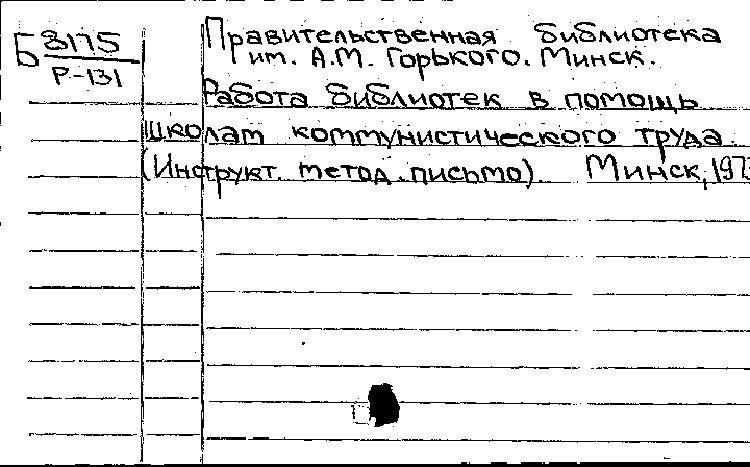 Б 8175
Р-131
Правительственная библиотека
им. А.М. Горького. Минск.
Работа библиотек в помощь
школам коммунистического труда.
(Инструкт. метод. письмо). Минск,